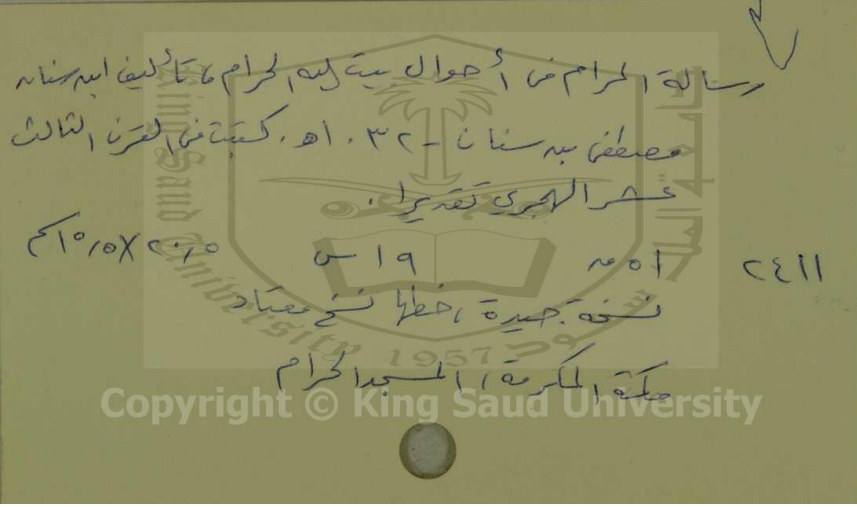 رسالة المرام في أحوال بيت الله الحرام، تأليف ابن سنان
مصطفى بن سنان - ١٠٣٢هـ. كتبت في القرن الثالث
عشر الهجري تقديرا.
٢٤١١ ٥١ق ١٩س ٢٠٫٥×١٥٫٥سم
نسخة جيدة، خطها نسخ معتاد
مكة المكرمة، المسجد الحرام
Copyright © King Saud University
King Saud University
1957